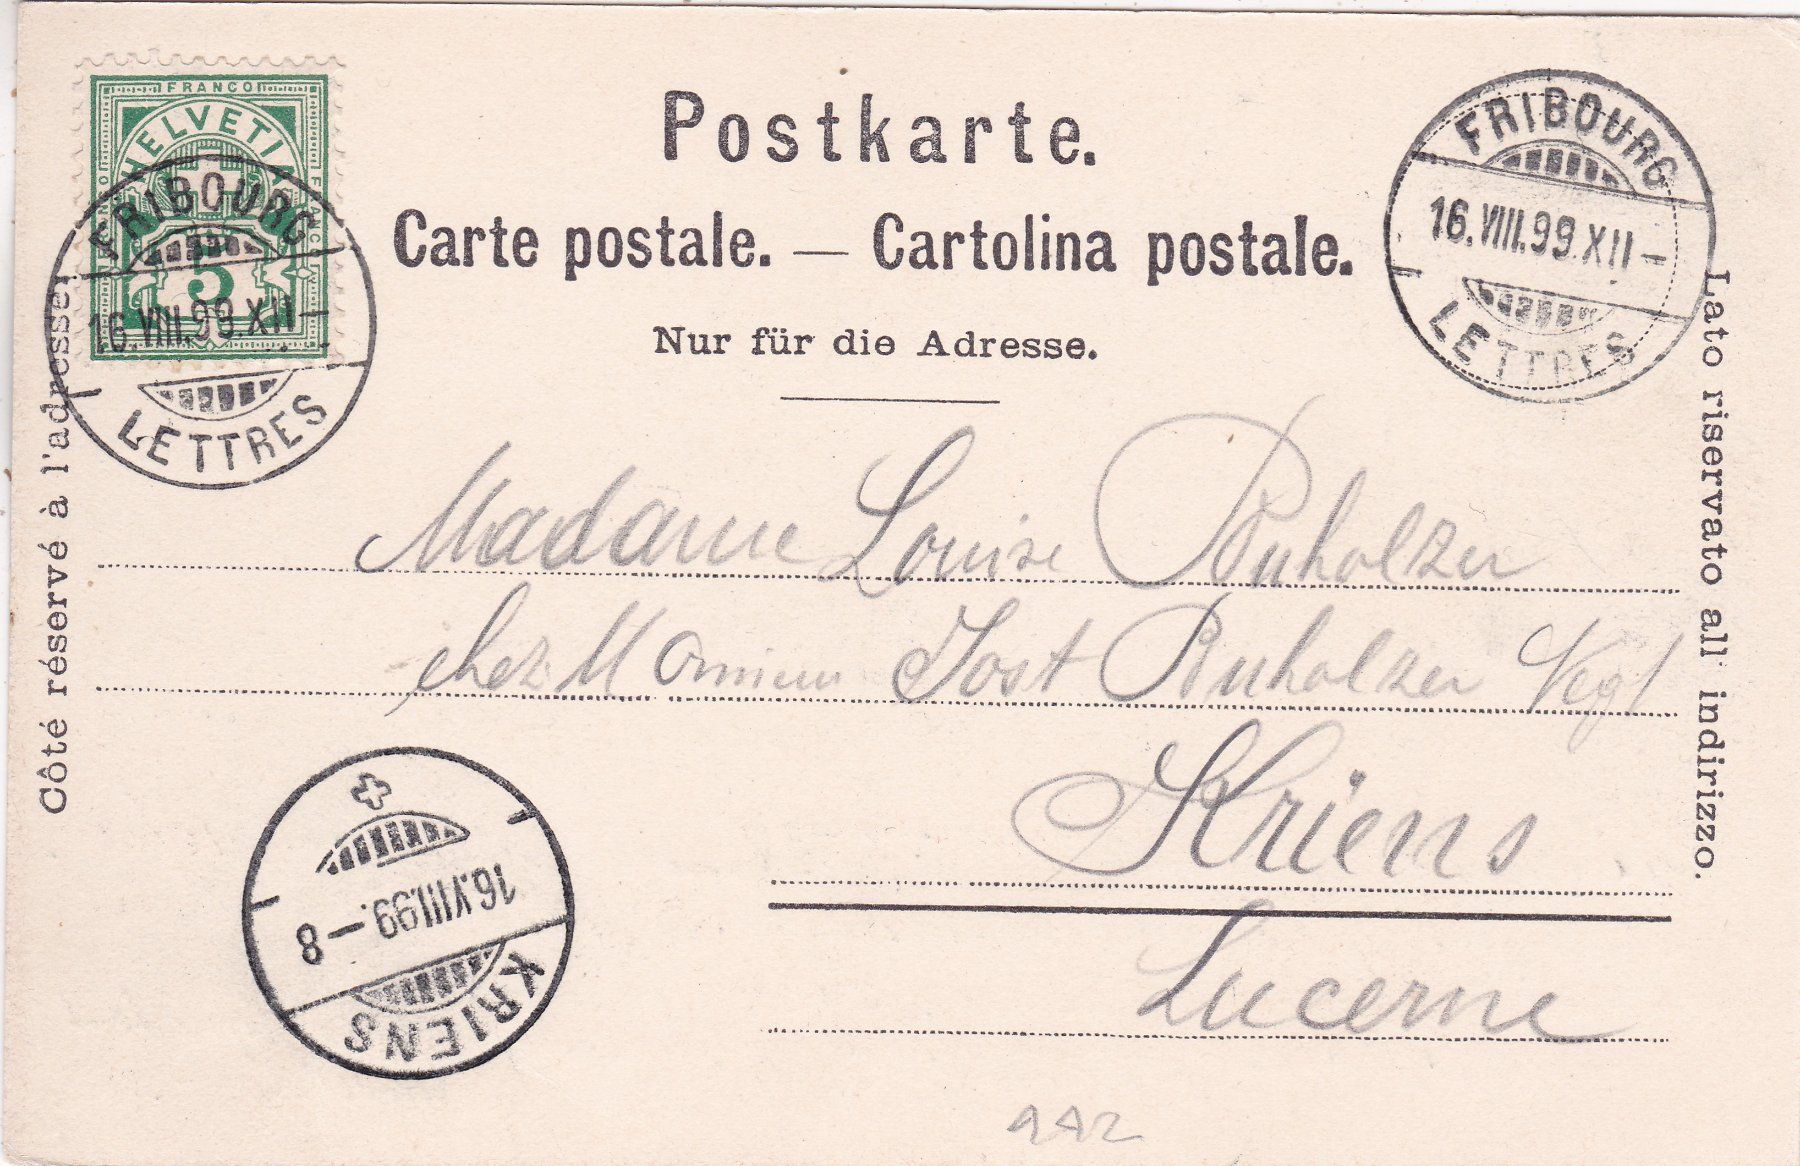 FRANCO
HELVETIA
FRANCO
FRANCO
5
FRIBOURG
16.VIII.99.XII–
LETTRES
Postkarte.
Carte postale. — Cartolina postale.
Nur für die Adresse.
FRIBOURG
16.VIII.99.XII–
LETTRES
Côté réservé à l'adresse.
Lato riservato all' indirizzo.
Madame Louise Buholzer
chez Monsieur Jost Buholzer
Kriens
Lucerne
16.VIII.99.–8
KRIENS